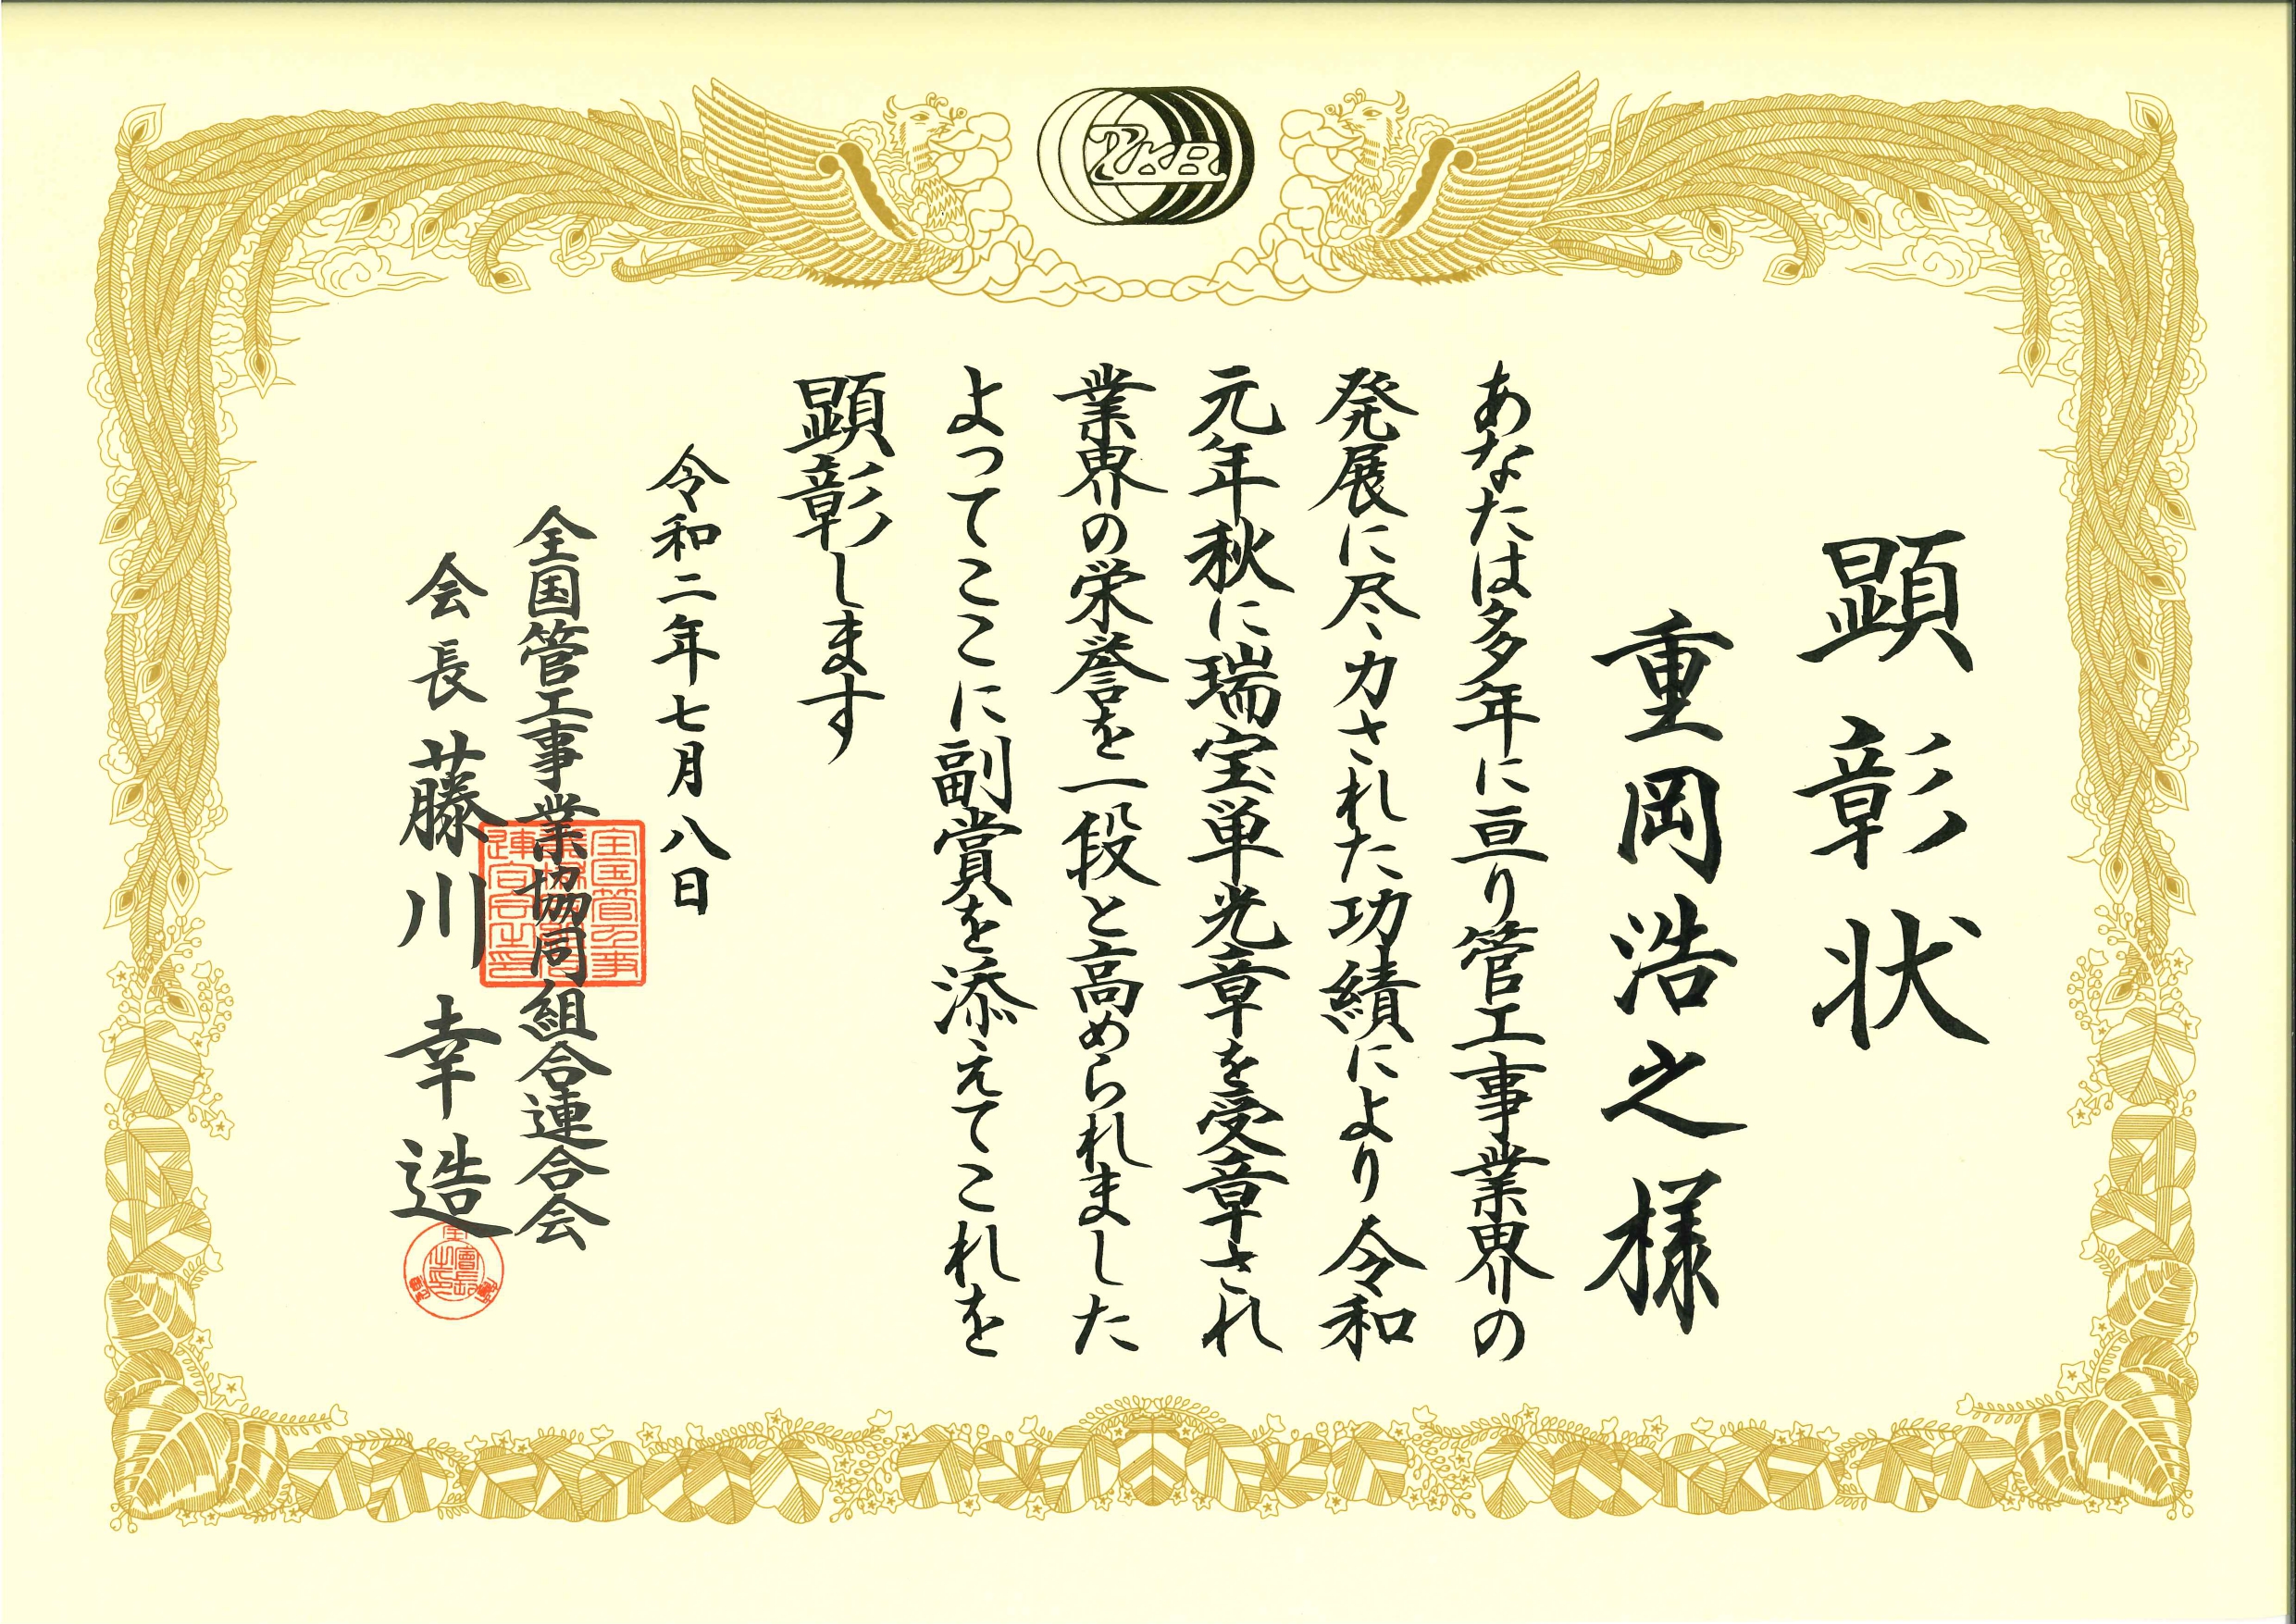 顕彰状
重岡浩之様
あなたは多年に亘り管工事業界の
発展に尽力された功績により令和
元年秋に瑞宝単光章を受章され
業界の栄誉を一段と高められました
よってここに副賞を添えてこれを
顕彰します
令和二年七月八日
全国管工事業協同組合連合会
会長 藤川幸造